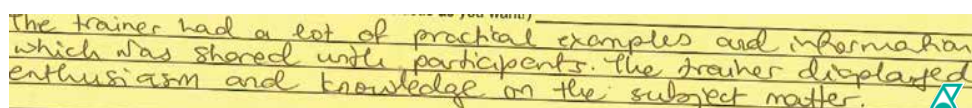 as you want!)
The trainer had a lot of practical examples and information
which was shared with participents. The trainer displayed
enthusiasm and knowledge on the subject matter.